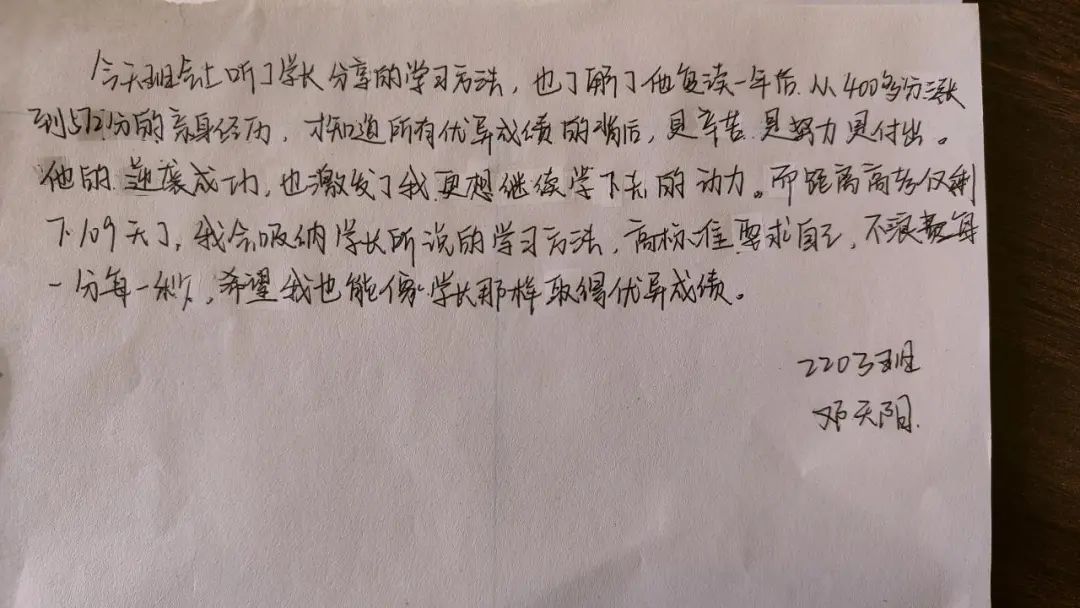 今天班会上听了学长分享的学习方法，也了解了他复读一年后从400多分涨
到572分的亲身经历，才知道所有优异成绩的背后，是辛苦是努力是付出。
他的逆袭成功，也激发了我更想继续学下去的动力。而距离高考仅剩
下109天了，我会吸纳学长所说的学习方法，高标准要求自己，不浪费每
一分每一秒，希望我也能像学长那样取得优异成绩。
2203班
邓天阳